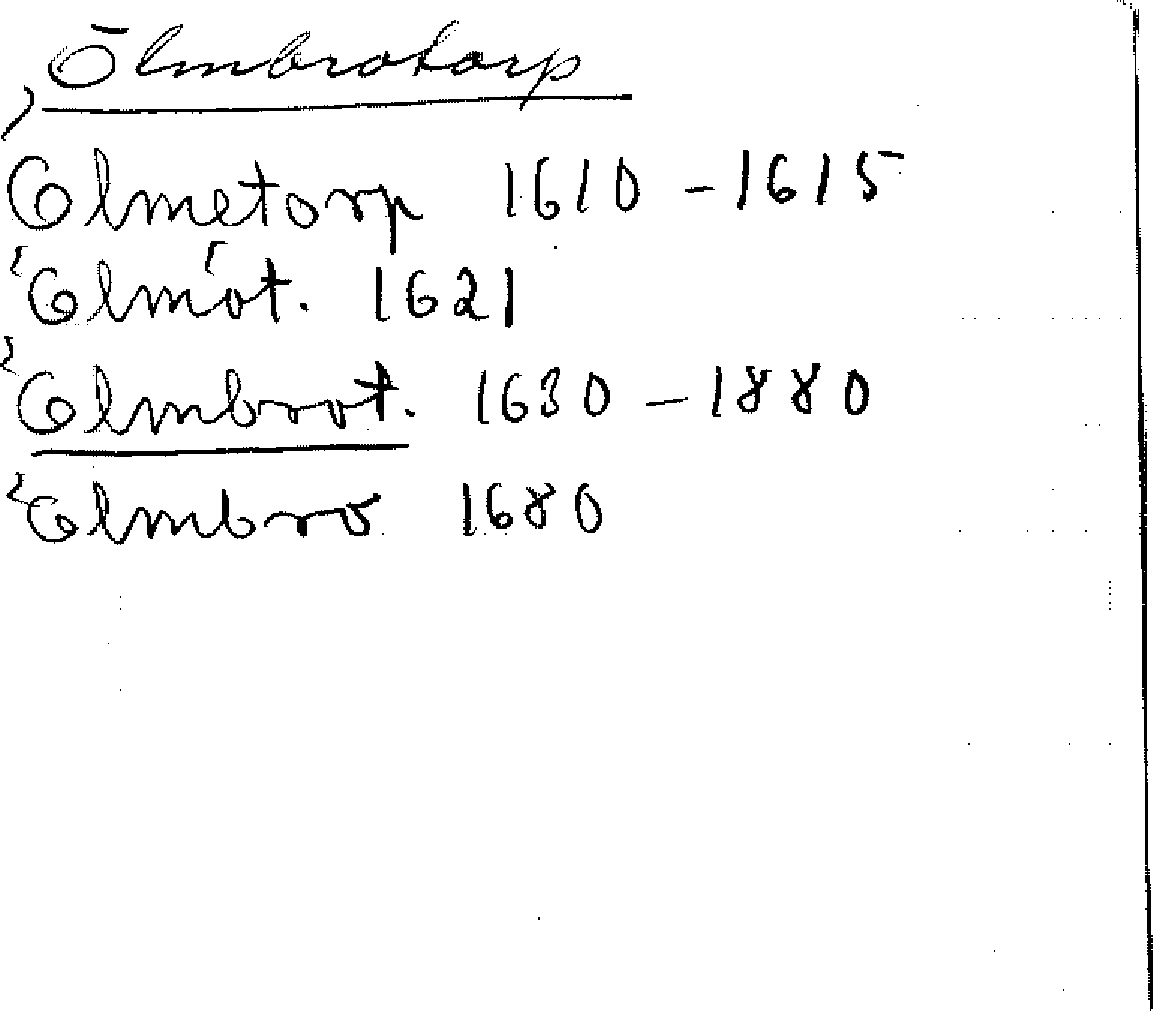 Ölmbrotorp
Ölmetorp 1610 - 1615
Ölmót. 1621
Ölmbrot. 1630 - 1880
Ölmbro 1680